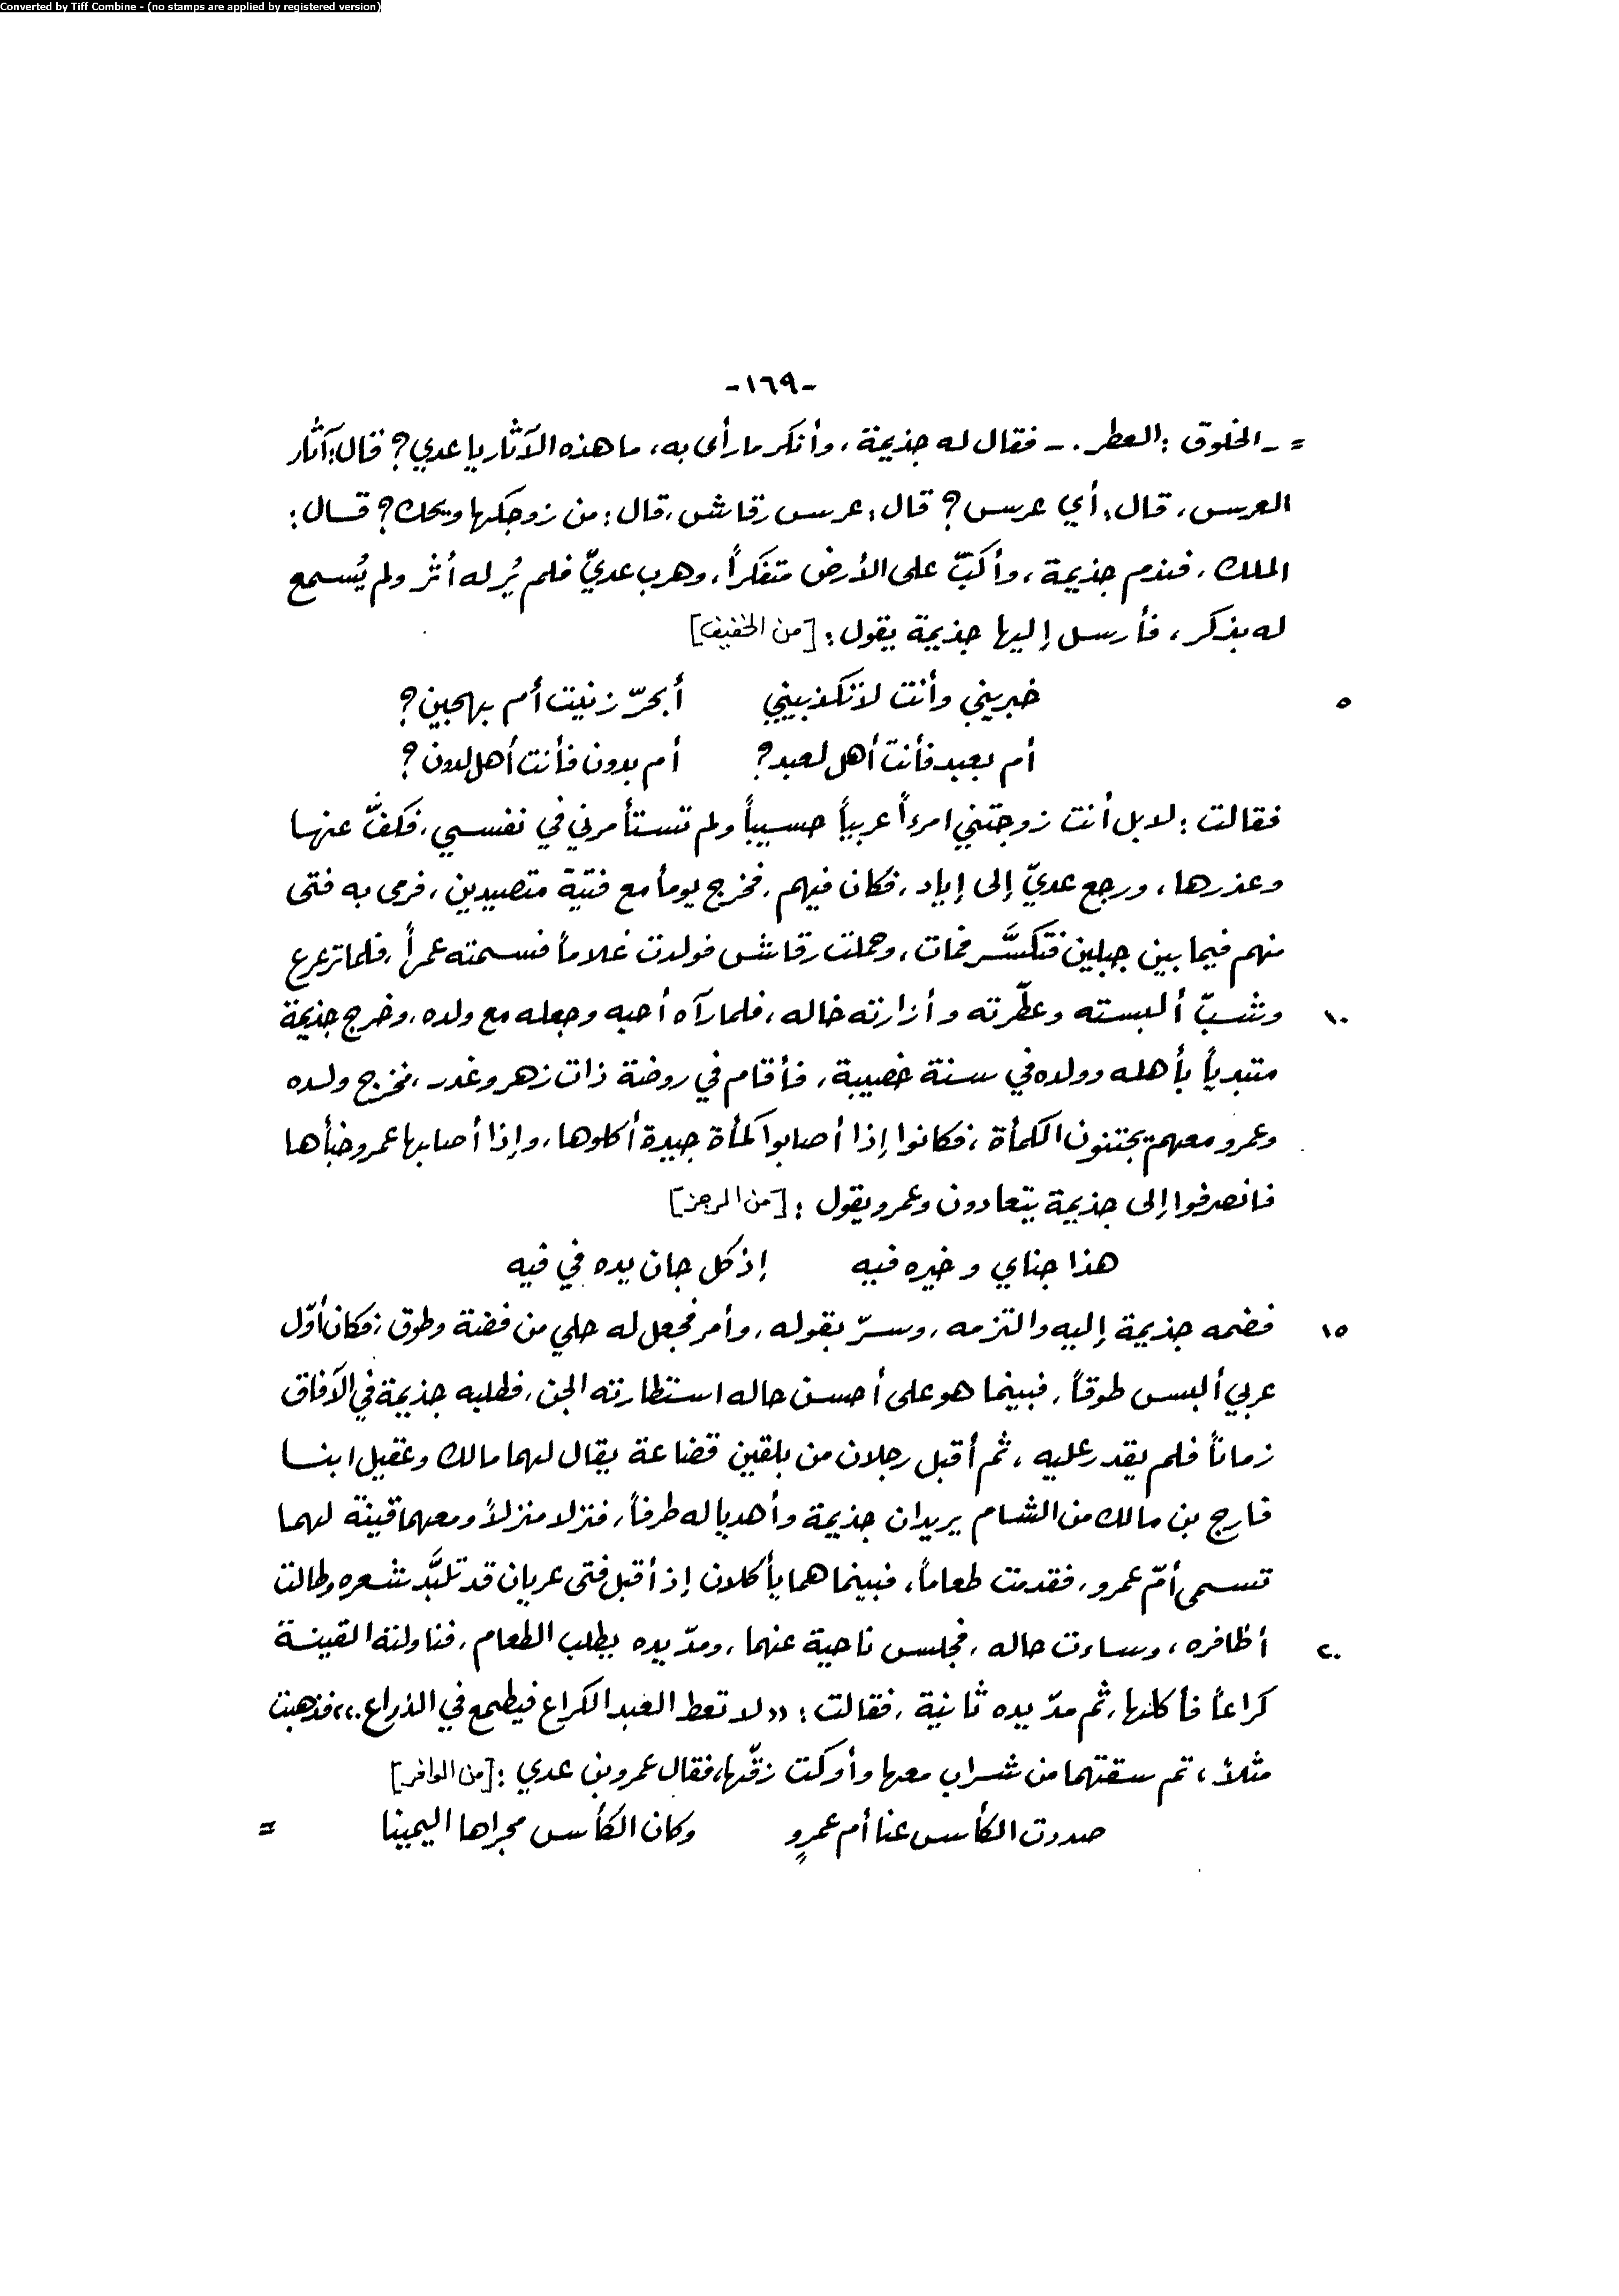 Converted by Tiff Combine - (no stamps are applied by registered version)
-١٦٩-
= - الخلوق : العطر . - فقال له جذيمة ، وأنكر ما رأى به ، ما هذه الآثار يا عدي ؟ قال : آثار
العرس ، قال : أي عرس ؟ قال : عرس رقاش ، قال : من زوجكها ويحك ؟ قال :
الملك ، فندم جذيمة ، وأكبّ على الأرض متفكراً ، وهرب عديّ فلم يُر له أثر ولم يُسمع
له بذكر ، فأرسل إليها جذيمة يقول : [من الخفيف]
خبريني وأنت لا تكذبيني أبحرّ زنيت أم بهجين ؟
٥
أم بعبد فأنت أهل لعبد ؟ أم بدون فأنت أهل لدون ؟
فقالت : لا بل أنت زوجتني امرءاً عربياً حسيباً ولم تستأمرني في نفسي ، فكفَّ عنها
وعذرها ، ورجع عديّ إلى إياد ، فكان فيهم ، فخرج يوماً مع فتية متصيدين ، فرمى به فتى
منهم فيما بين جبلين فتكسَّر فمات ، وحملت رقاش فولدت غلاماً فسمته عمراً ، فلما ترعرع
١٠ وشبّ ألبسته وعطّرته وأزارته خاله ، فلما رآه أحبه وجعله مع ولده ، وخرج جذيمة
متبدياً بأهله وولده في سنة خصيبة ، فأقام في روضة ذات زهر وغدر ، فخرج ولده
وعمرو معهم يجتنون الكمأة ، فكانوا إذا أصابوا كمأة جيدة أكلوها ، وإذا أصابها عمرو خبأها
فانصرفوا إلى جذيمة يتعادون وعمرو يقول : [من الرجز]
هذا جناي وخيره فيه إذ كل جان يده في فيه
١٥ فضمه جذيمة إليه والتزمه ، وسرّ بقوله ، وأمر فجعل له حلي من فضة وطوق ، فكان أوّل
عربي ألبس طوقاً ، فبينما هو على أحسن حاله استطارته الجن ، فطلبه جذيمة في الآفاق
زماناً فلم يقدر عليه ، ثم أقبل رجلان من بلقين قضاعة يقال لهما مالك وعقيل ابنا
فارج بن مالك من الشام يريدان جذيمة وأهديا له طرفاً ، فنزلا منزلاً ومعهما قينة لهما
تسمى أمّ عمرو ، فقدمت طعاماً ، فبينما هما يأكلان إذ أقبل فتى عريان قد تلبَّد شعره وطالت
٢٠ أظافره ، وساءت حاله ، فجلس ناحية عنهما ، ومدّ يده يطلب الطعام ، فناولته القينة
كراعاً فأكلها ، ثم مدّ يده ثانية ، فقالت : «لا تعط العبد الكراع فيطمع في الذراع .» فذهبت
مثلاً ، ثم سقتهما من شراب معها وأوكت زقّها ، فقال عمرو بن عدي : [من الوافر]
صددت الكأس عنا أم عمرٍو وكان الكأس مجراها اليمينا =